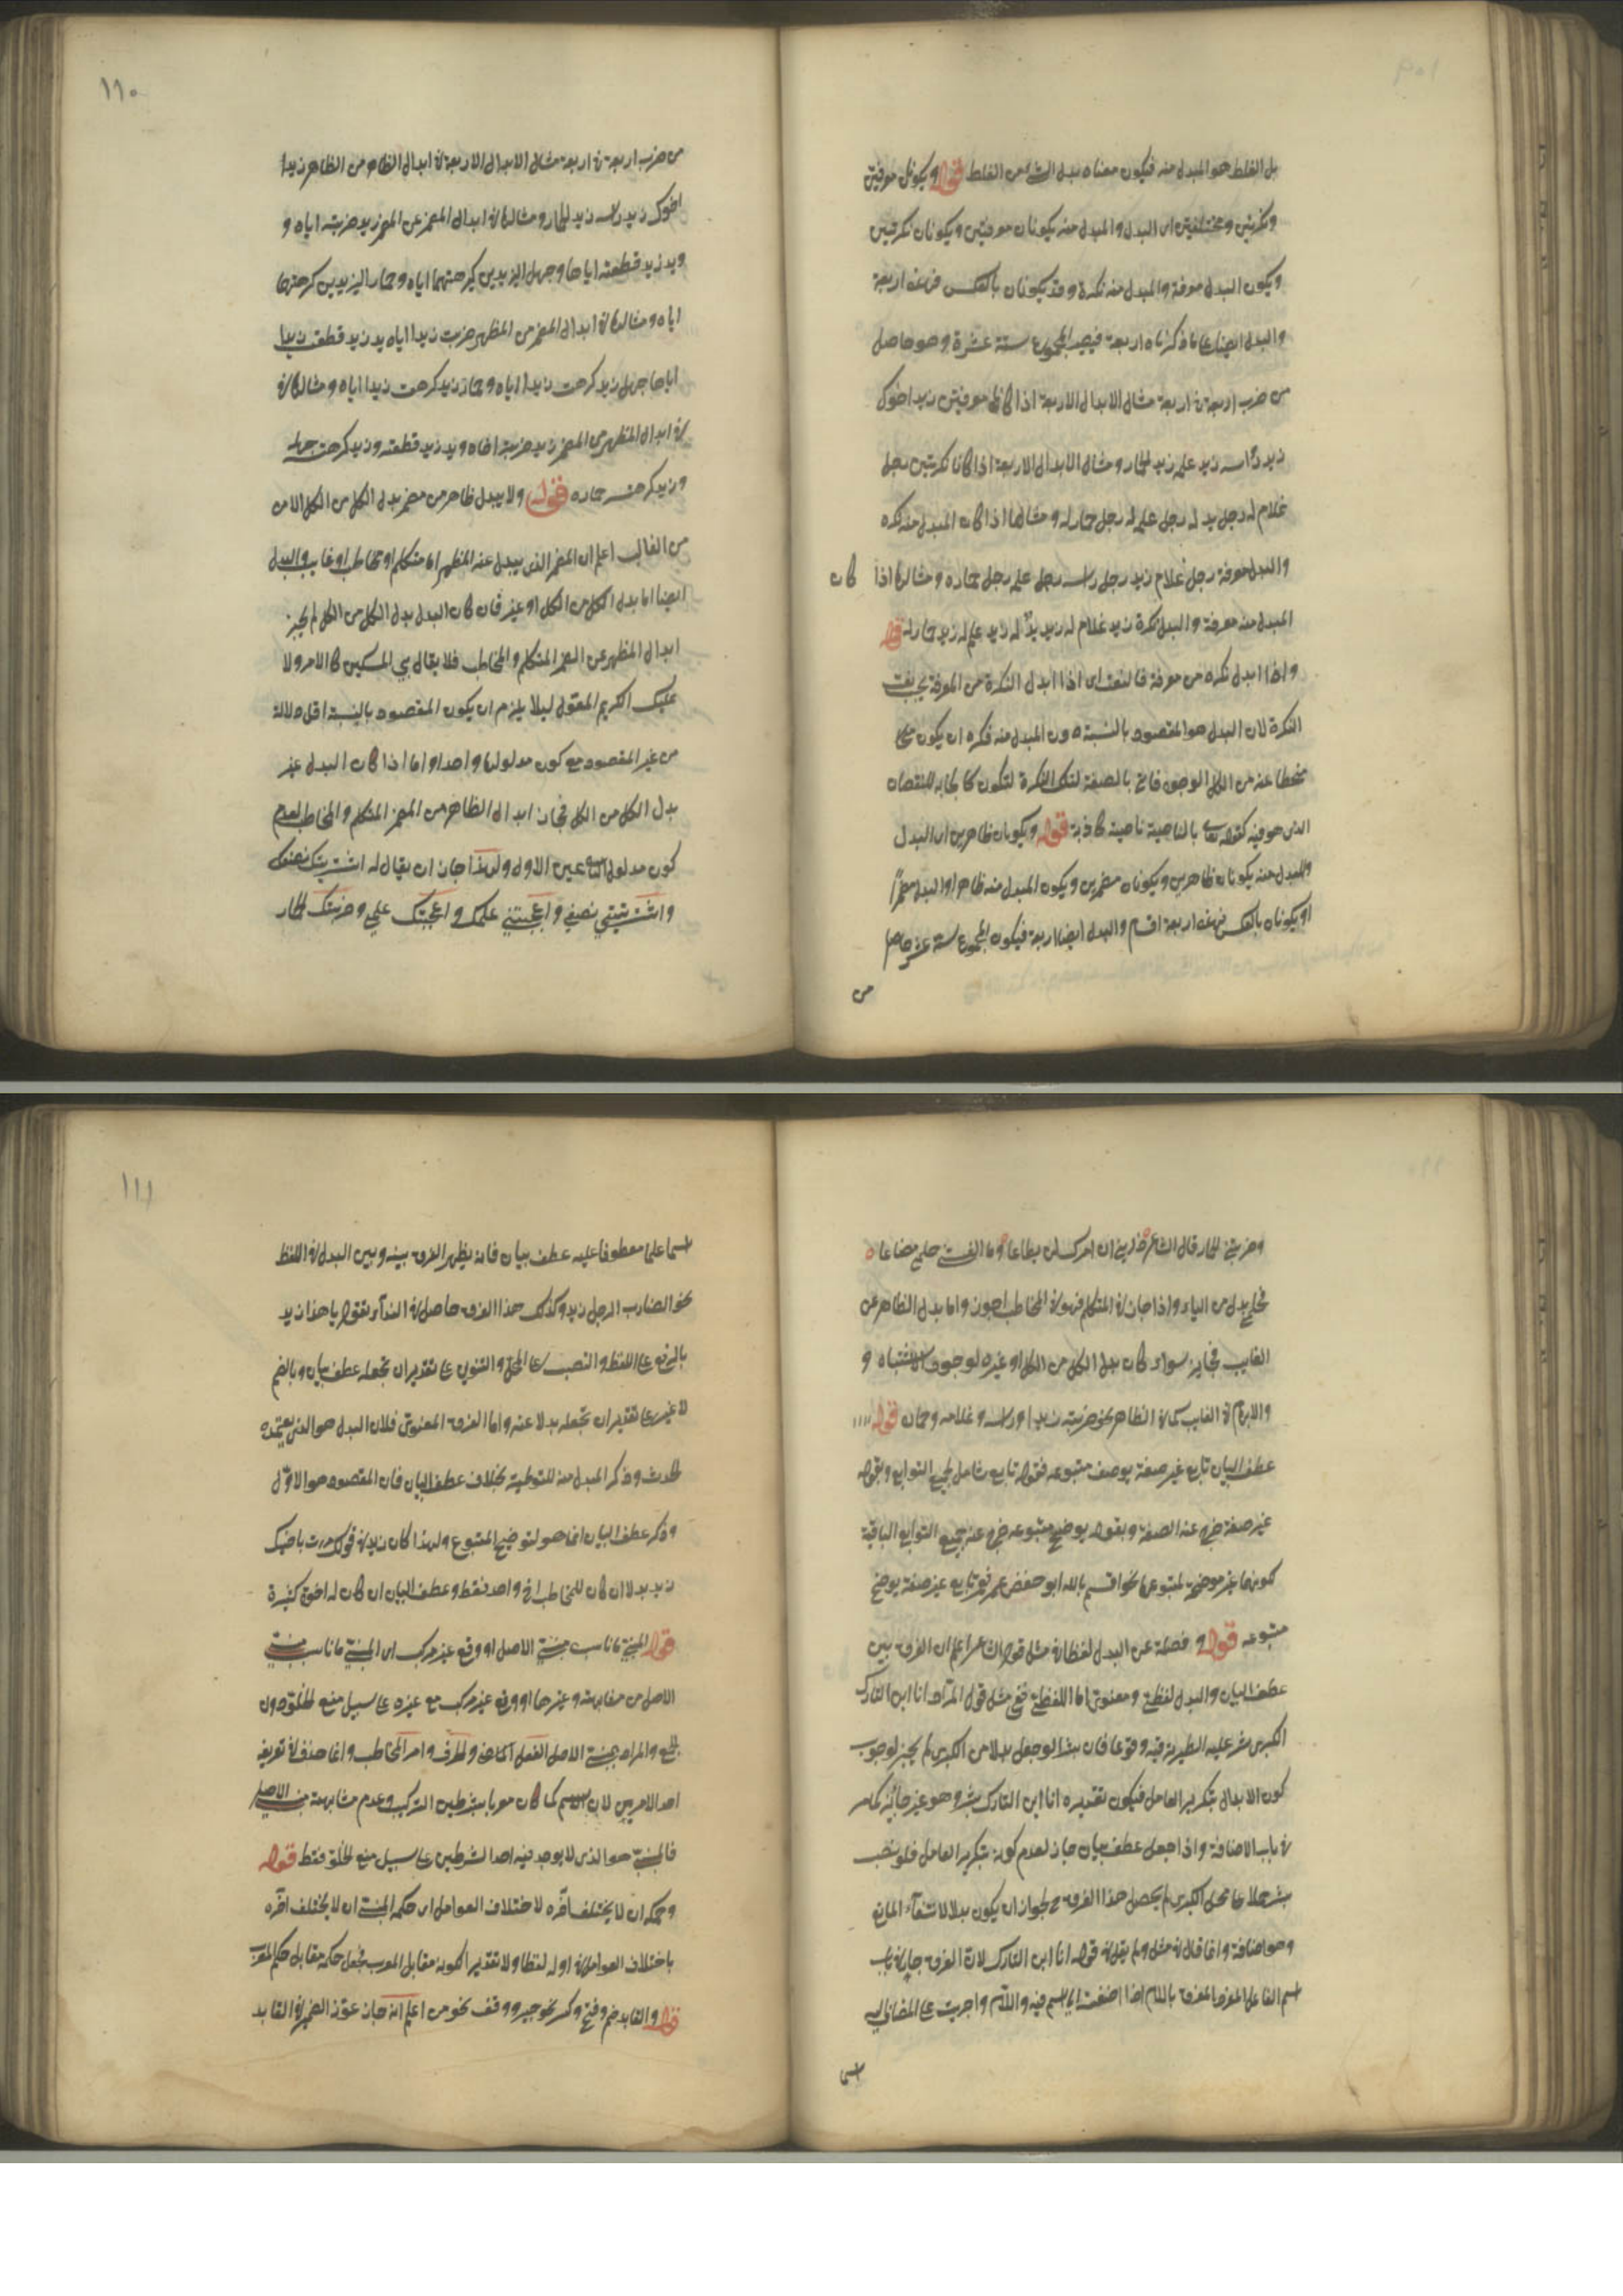 بل الغلط هو المبدل منه فيكون معناه بدل الشئ من الغلط قوله ويكونان معرفتين
ونكرتين ومختلفين اى البدل والمبدل منه يكونان معرفتين ويكونان نكرتين
ويكون البدل معرفة والمبدل منه نكرة وقد يكونان بالعكس فهذه اربعة
والبدل ايضا على ما ذكرناه اربعة فيصير المجموع ستة عشرة وهو حاصل
من ضرب اربعة فى اربعة مثال الابدال الاربعة اذا كانا معرفتين زيد اخوك
زيد راسه زيد علمه زيد الحمار ومثال الابدال الاربعة اذا كانا نكرتين رجل
غلام له رجل يد له رجل علم له رجل حمار له ومثالها اذا كان المبدل منه نكره
والبدل معرفة رجل غلام زيد رجل راسه رجل علمه رجل حماره ومثالها اذا كان
المبدل منه معرفة والبدل نكرة زيد غلام له زيد يد له زيد علم له زيد حمار له قوله
واذا ابدل نكره من معرفة فالنعت اى اذا ابدل النكرة من المعرفة يجب نعت
النكرة لان البدل هو المقصود بالنسبة دون المبدل منه فكره ان يكون
منحطا عنه من كل الوجوه فاتى بالصفة لتلك النكرة لتكون كالجابر للنقصان
الذى هو فيه كقوله تعالى بالناصية ناصية كاذبة قوله ويكونان ظاهرين اى البدل
والمبدل منه يكونان ظاهرين ويكونان مضمرين ويكون المبدل منه ظاهرا والبدل مضمرا
او يكونان بالعكس فهذه اربعة اقسام والبدل ايضا اربعة فيكون المجموع ستة عشر حاصلا
من
١١٠
من ضرب اربعة فى اربعة مثال الابدال الاربعة فى ابدال الظاهر من الظاهر زيدا
اخوك زيد راسه زيد الحمار ومثالها فى ابدال المضمر عن المضمر زيد ضربته اياه و
ويد زيد قطعته اياها وجهل الزيدين كرهتهما اياه وحمار الزيدين كرهتهما
اياه ومثالها فى ابدال المضمر من المظهر ضربت زيدا اياه يد زيد قطعت زيدا
اياها جهل زيد كرهت زيدا اياه وحمار زيد كرهت زيدا اياه ومثالها فى
فى ابدال المظهر من المضمر زيد ضربته اخاه ويد زيد قطعته وزيد كرهت جهله
وزيد كرهت حماره قوله ولا يبدل ظاهر من مضمر بدل الكل من الكل الا من
من الغائب اعلم ان المضمر الذى يبدل عنه المظهر اما متكلم او مخاطب او غايب والبدل
ايضا اما بدل الكل من الكل او غيره فان كان البدل بدل الكل من الكل لم يجز
ابدال المظهر عن المضمر المتكلم والمخاطب فلا يقال بى المسكين كان الامر ولا
عليك الكريم المعول ليلا يلزم ان يكون المقصود بالنسبة اقل دلالة
من غير المقصود مع كون مدلولهما واحدا واما اذا كان البدل غير
بدل الكل من الكل فجاز ابدال الظاهر من المضمر المتكلم والمخاطب لعدم
كون مدلول الثانى عين الاول ولهذا جاز ان يقال له اشتريتك نصفك
واشتريتنى نصفى واعجبتنى علمك واعجبتك علمى وضربتك الحمار
وضربتنى الحمار قال الشاعر ذرينى ان امرك لن يطاعا وما الفيتنى حلمى مضاعا
فحلمى بدل من الياء واذا جاز فى المتكلم فهو فى المخاطب اجوز واما بدل الظاهر عن
الغايب فجايز سواء كان بدل الكل من الكل او غيره لوجود الاشتباه و
والابهام فى الغايب كما فى الظاهر نحو ضربته زيدا وراسه وغلامه وحمار قوله
عطف البيان تابع غير صفة يوضح متبوعه فقوله تابع شامل لجميع التوابع وبقوله
غير صفة خرج عنه الصفة وبقوله يوضح متبوعه خرج عنه جميع التوابع الباقية
كونها غير موضحة لمتبوعها نحو اقسم بالله ابو حفص عمر فهو تابع غير صفة يوضح
متبوعه قوله وفصله عن البدل لفظا فى مثل قول الشاعر اعلم ان الفرق بين
عطف البيان والبدل لفظى ومعنوى اما اللفظى ففى مثل قول المرار انا ابن التارك
البكرى بشر عليه الطير ترقبه وقوعا فان بشرا لو جعل بدلا من البكرى لم يجز لوجوب
كون الابدال بتكرير العامل فيكون تقديره انا ابن التارك بشر وهو غير جائز كما مر
فى باب الاضافة واذا جعل عطف بيان جاز لعدم كونه بتكرير العامل فلو نصب
بشر حملا على محل البكرى لم يحصل هذا الفرق لجواز ان يكون بدلا لانتفاء المانع
وهو اضافة وانما قال فى مثل ولم يقل فى قوله انا ابن التارك لان الفرق جار فى باب
اسم الفاعل المعرف باللام اذا اضفت الى اسم فيه واللام واجريت على المضاف اليه
اسما
١١١
اسما علما معطوفا عليه عطف بيان فانه يظهر الفرق بينه وبين البدل فى اللفظ
نحو الضارب الرجل زيد وكذلك هذا الفرق حاصل فى النداء بقوله يا هذا زيد
بالرفع على اللفظ والنصب على المحل والتنوين على تقدير ان تجعله عطف بيان وبالضم
لا غير على تقدير ان تجعله بدلا عنه واما الفرق المعنوى فلان البدل هو الذى يعتمده
الحدث وذكر المبدل منه للتوطية بخلاف عطف البيان فان المقصود هو الاول
وذكر عطف البيان انما هو لتوضيح المتبوع ولهذا كان زيد فى قولك مررت باخيك
زيد بدلا ان كان للمخاطب اخ واحد فقط وعطف البيان ان كان له اخوة كثيرة
قوله المبنى ما ناسب مبنى الاصل او وقع غير مركب اى المبنى ما ناسب مبنى
الاصل من مشابهته وغيرها او وقع غير مركب مع غيره على سبيل منع الخلو دون
الجمع والمراد بمبنى الاصل الفعل الماضى والحرف وامر المخاطب وانما حذف فى تعريفه
احد الامرين لان الاسم كما كان معربا بشرطين التركيب وعدم مشابهة مبنى الاصل
فالمبنى هو الذى لا يوجد فيه احد الشرطين على سبيل منع الخلو فقط قوله
وحكمه ان لا يختلف اخره لاختلاف العوامل اى حكم المبنى ان لا يختلف اخره
باختلاف العوامل فى اوله لفظا ولا تقديرا لكونه مقابل المعرب فجعل حكمه مقابل حكم المعرب
قوله والقابه ضم وفتح وكسر نحو جير ووقف نحو من اعلم انه جاز عود الضمير فى القابه